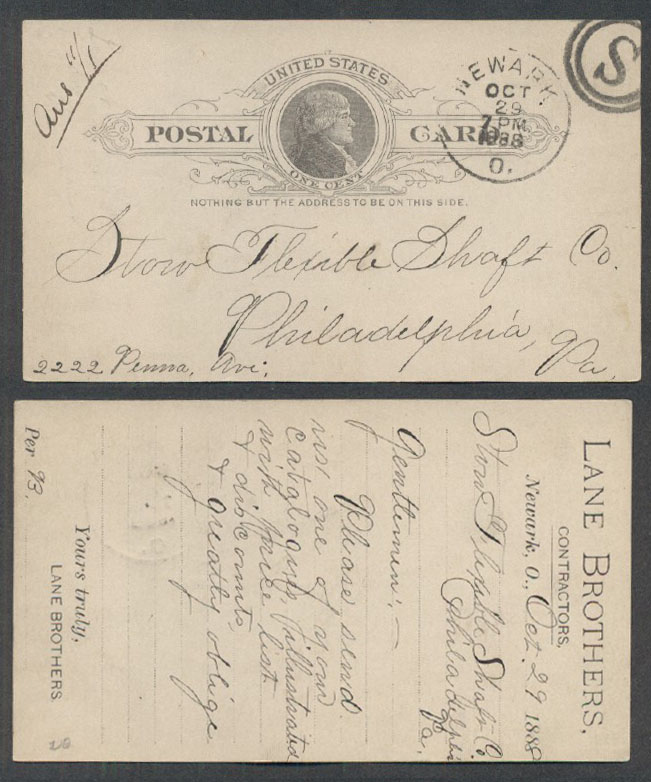 Ans 11/1
UNITED STATES
POSTAL CARD
ONE CENT
NOTHING BUT THE ADDRESS TO BE ON THIS SIDE.
NEWARK
OCT
29
7 PM
1888
O.
S
Stow Flexible Shaft Co.
Philadelphia,
2222 Penna, Ave; Pa,
LANE BROTHERS,
CONTRACTORS,
Newark, O., Oct. 29 1888
Stow Flexible Shaft Co
Philadelphi
Pa,
Gentlemen; —
Please send
us one of your
catalogues, illustrated
with price list
& discounts,
& greatly oblige
Yours truly,
LANE BROTHERS.
Per 93.
20